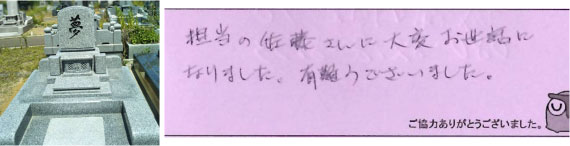 夢
担当の佐藤さんに大変お世話に
なりました。有難うございました。
ご協力ありがとうございました。